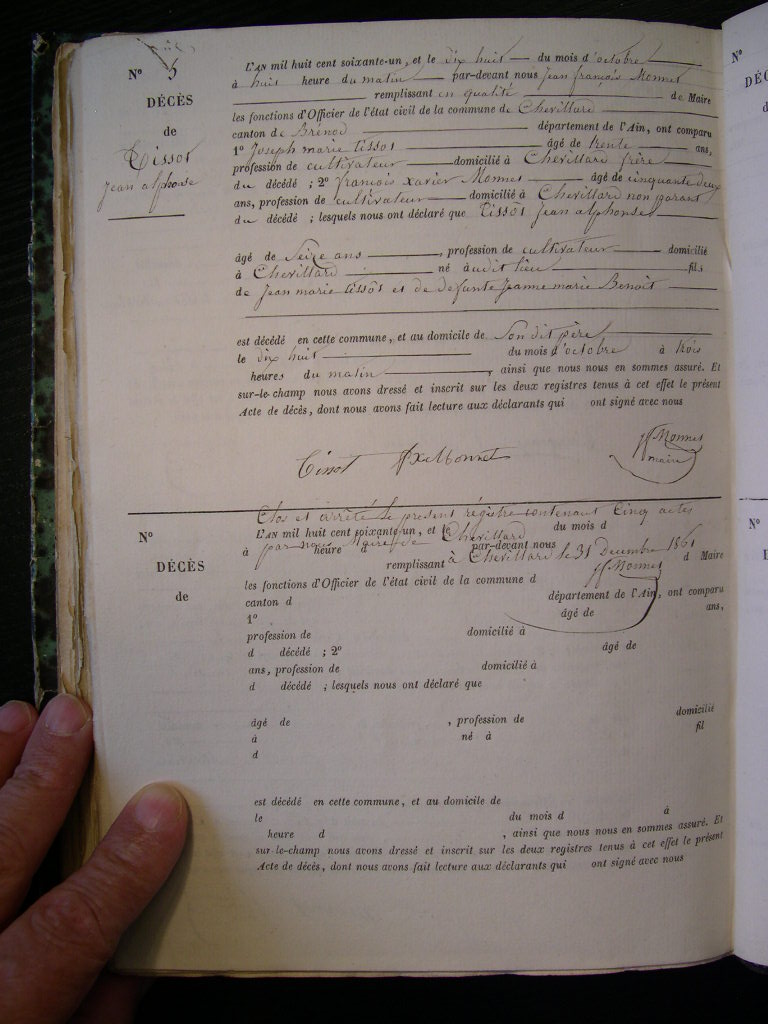 N° 5
DÉCÈS
de
Tissot
jean alphonse
L'AN mil huit cent soixante-un, et le dix huit du mois d'octobre
à huit heure du matin par-devant nous jean françois Monnet
remplissant en qualité de Maire
les fonctions d'Officier de l'état civil de la commune de Chevillard
canton de Brénod département de l'Ain, ont comparu
1° Joseph marie tissot âgé de trente ans,
profession de cultivateur domicilié à Chevillard frère
du décédé ; 2° françois xavier Monnet âgé de cinquante deux
ans, profession de cultivateur domicilié à Chevillard non parant
du décédé ; lesquels nous ont déclaré que tissot jean alphonse
âgé de Seize ans , profession de cultivateur domicilié
à Chevillard né audit lieu fils
de Jean marie tissot et de defunte Jeanne marie Benoit
est décédé en cette commune, et au domicile de Son dit père
le dix huit du mois d'octobre à trois
heures du matin , ainsi que nous nous en sommes assuré. Et
sur-le-champ nous avons dressé et inscrit sur les deux registres tenus à cet effet le présent
Acte de décès, dont nous avons fait lecture aux déclarants qui ont signé avec nous
Tissot fxMonnet jfMonnet
maire
Clos et arrêté le present régistre contenant Cinq actes
N°
DÉCÈS
de
L'AN mil huit cent soixante-un, et le du mois d
par nous maire de Chevillard
à heure d par-devant nous
à Chevillard le 31 Decembre 1861
remplissant d Maire
jfMonnet
les fonctions d'Officier de l'état civil de la commune d
canton d département de l'Ain, ont comparu
1° âgé de ans,
profession de domicilié à
d décédé ; 2° âgé de
ans, profession de domicilié à
d décédé ; lesquels nous ont déclaré que
âgé de , profession de domicilié
à né à fil
d
est décédé en cette commune, et au domicile de
le du mois d à
heure d , ainsi que nous nous en sommes assuré. Et
sur-le-champ nous avons dressé et inscrit sur les deux registres tenus à cet effet le présent
Acte de décès, dont nous avons fait lecture aux déclarants qui ont signé avec nous
N°
N°